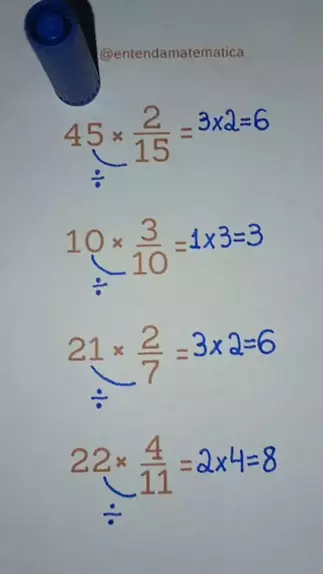 @entendamatematica
45 × 2/15 = 3x2=6
÷
10 × 3/10 = 1x3=3
÷
21 × 2/7 = 3x2=6
÷
22 × 4/11 = 2x4=8
÷